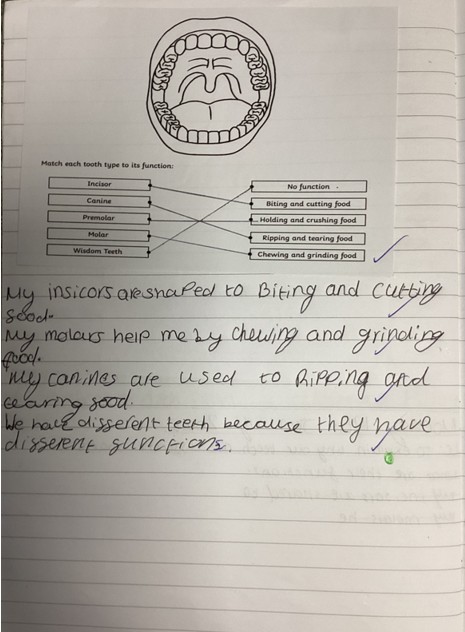 Match each tooth type to its function:
Incisor
No function
Canine
Biting and cutting food
Premolar
Holding and crushing food
Molar
Ripping and tearing food
Wisdom Teeth
Chewing and grinding food
My insicors are shaped to Biting and cutting
food.
My molars help me by chewing and grinding
food.
My canines are used to Ripping and
tearing food.
We have different teeth because they have
different functions.